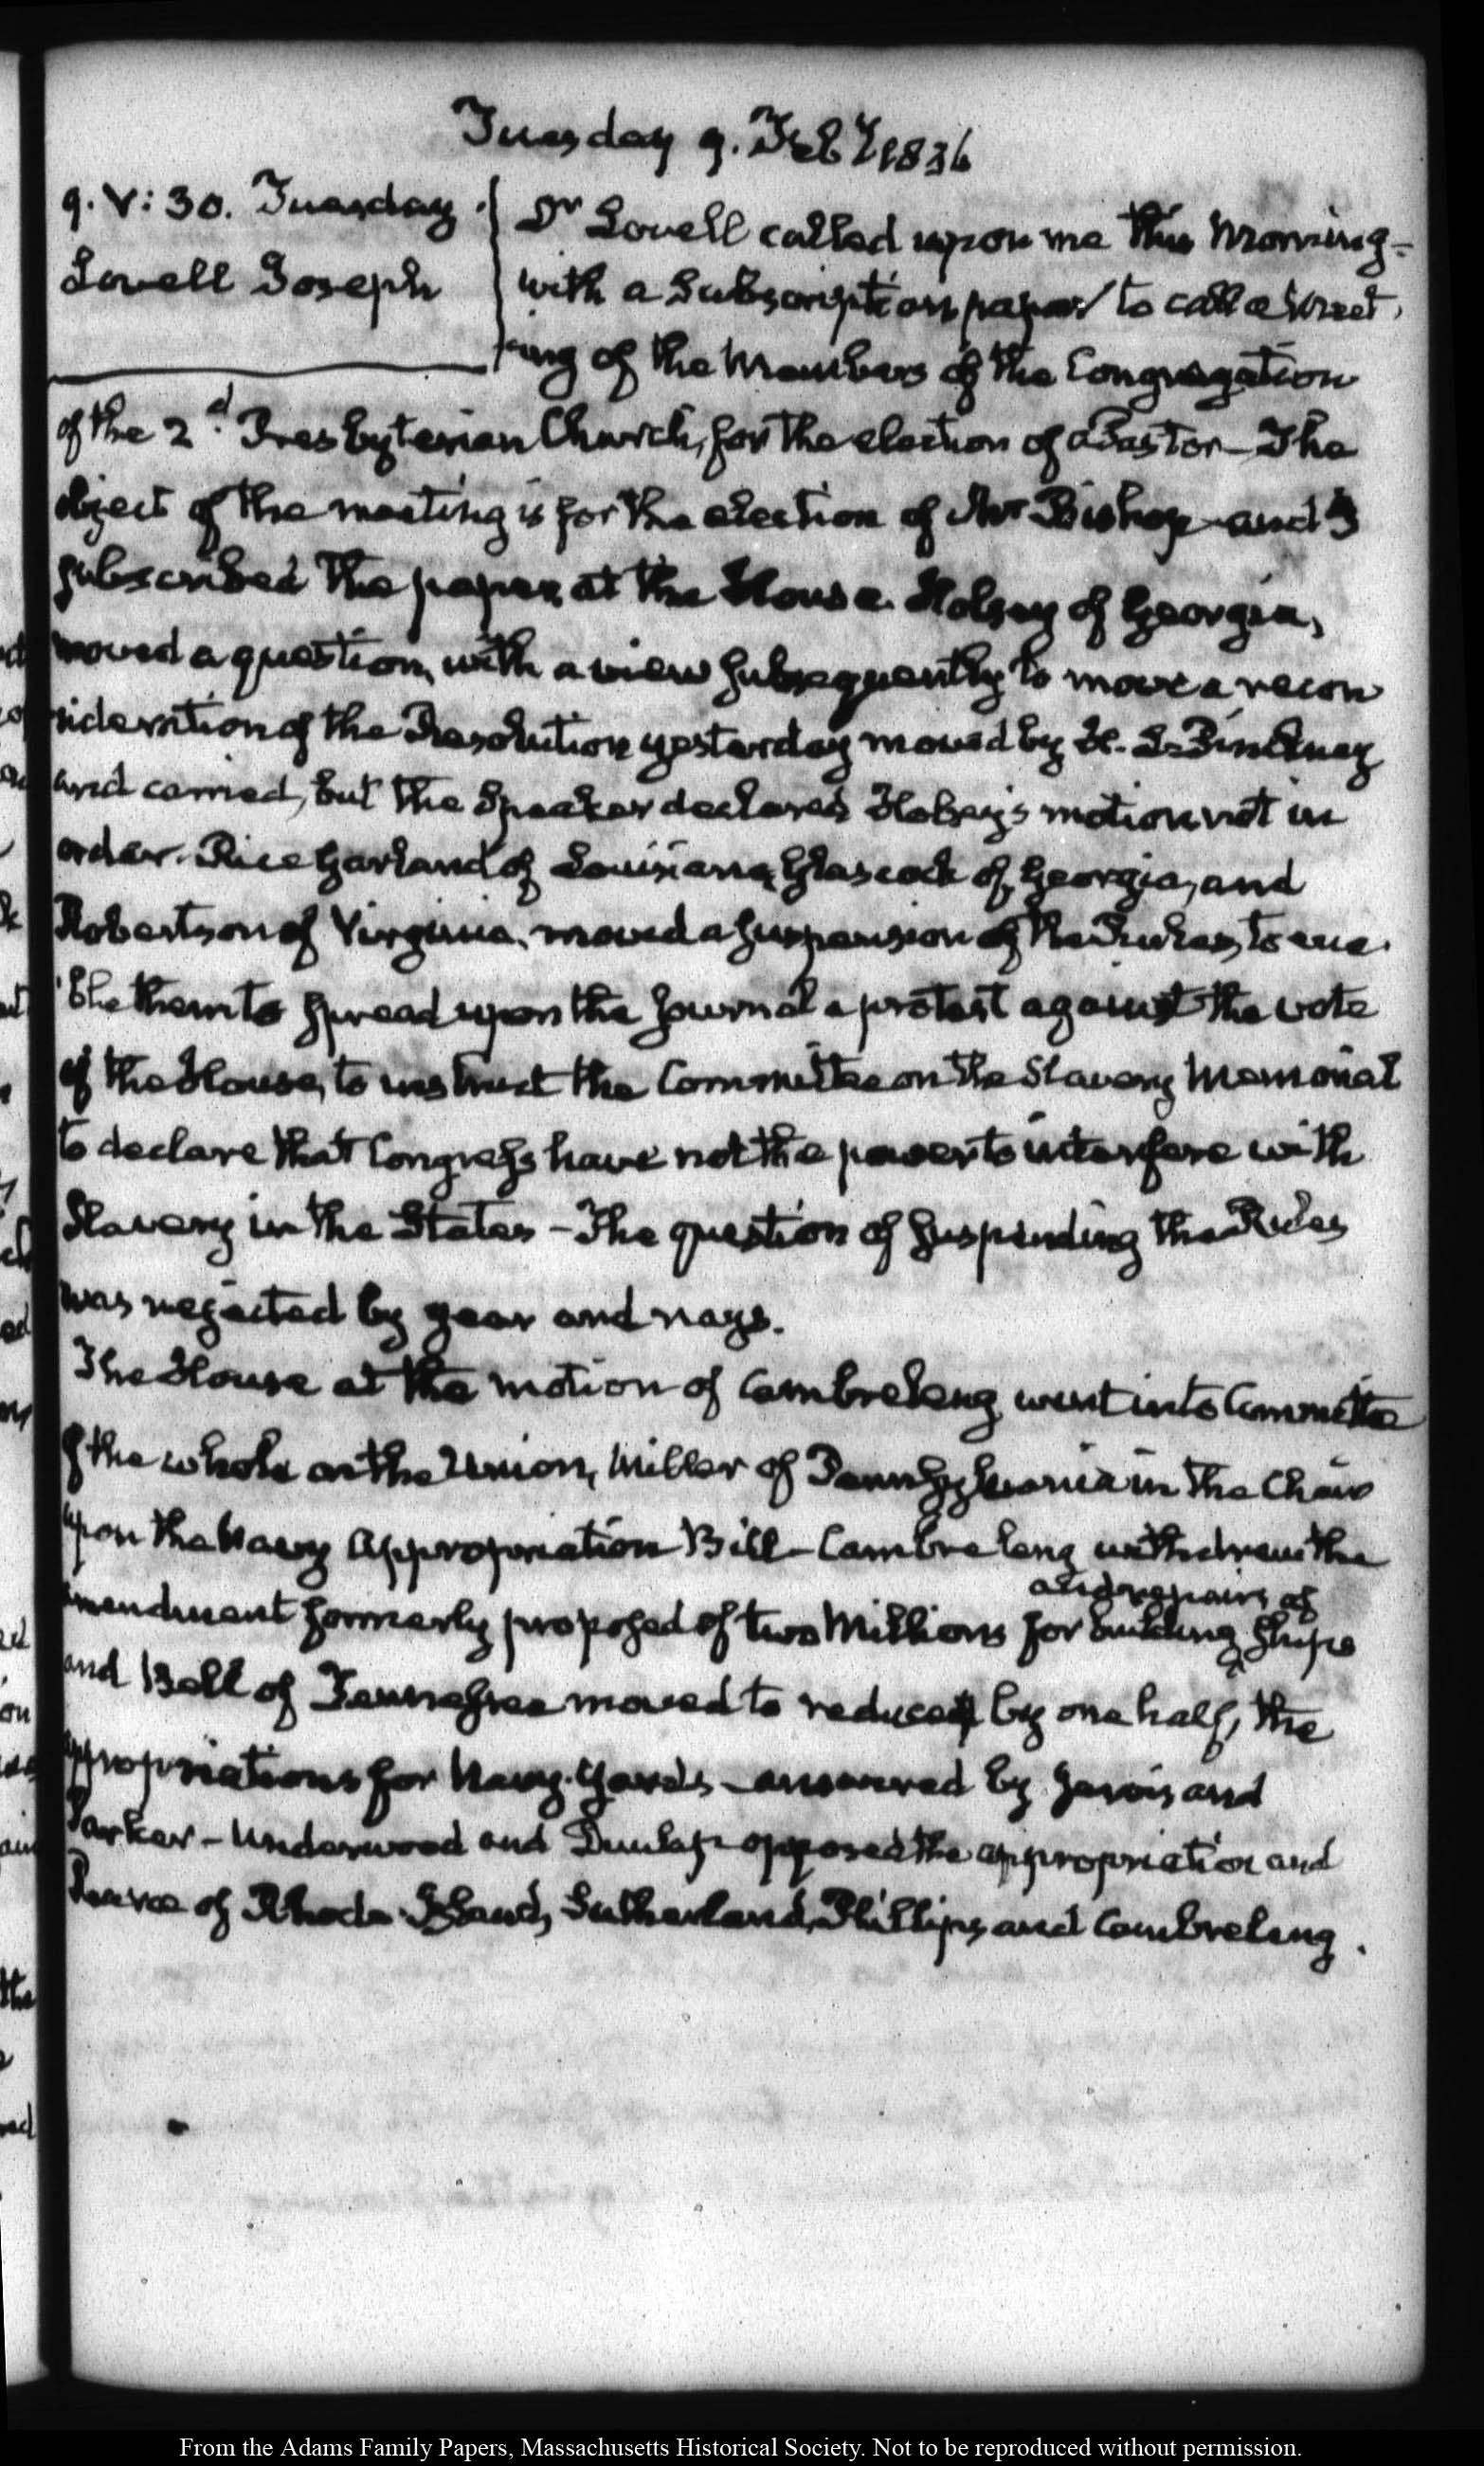 Tuesday 9. Feby 1836
9. V: 30. Tuesday.
Lovell Joseph
Dr Lovell called upon me this Morning-
with a Subscription paper to call a Meet-
ing of the Members of the Congregation
of the 2d. Presbyterian Church, for the election of a Pastor—The
object of the meeting is for the election of Mr Bishop and I
subscribed the paper, at the House. Holsey of Georgia,
moved a question, with a view subsequently to move a recon
sideration of the Resolution yesterday moved by H. L. Pinckney
and carried, but the Speaker declared Holsey's motion not in
order. Rice Garland of Louisiana, Glascock of Georgia, and
Robertson of Virginia. moved a suspension of the Rules, to ena-
ble them to spread upon the Journal a protest against the vote
of the House, to instruct the Committee on the Slavery Memorial
to declare that Congress have not the power to interfere with
Slavery in the States—The question of suspending the Rules
was rejected by yeas and nays.
The House at the motion of Cambreleng went into Committee
of the whole on the Union, Miller of Pennsylvania in the Chair
upon the Navy Appropriation Bill—Cambreleng withdrew the
and repairs of
amendment formerly proposed of two Millions for building ships
and Bell of Tennessee moved to reduce by one half, the
appropriations for Navy-Yards—answered by Jarvis and
Parker—Underwood and Dunlap opposed the appropriation and
Pearce of Rhode Island, Sutherland, Phillips, and Cambreleng.
From the Adams Family Papers, Massachusetts Historical Society. Not to be reproduced without permission.